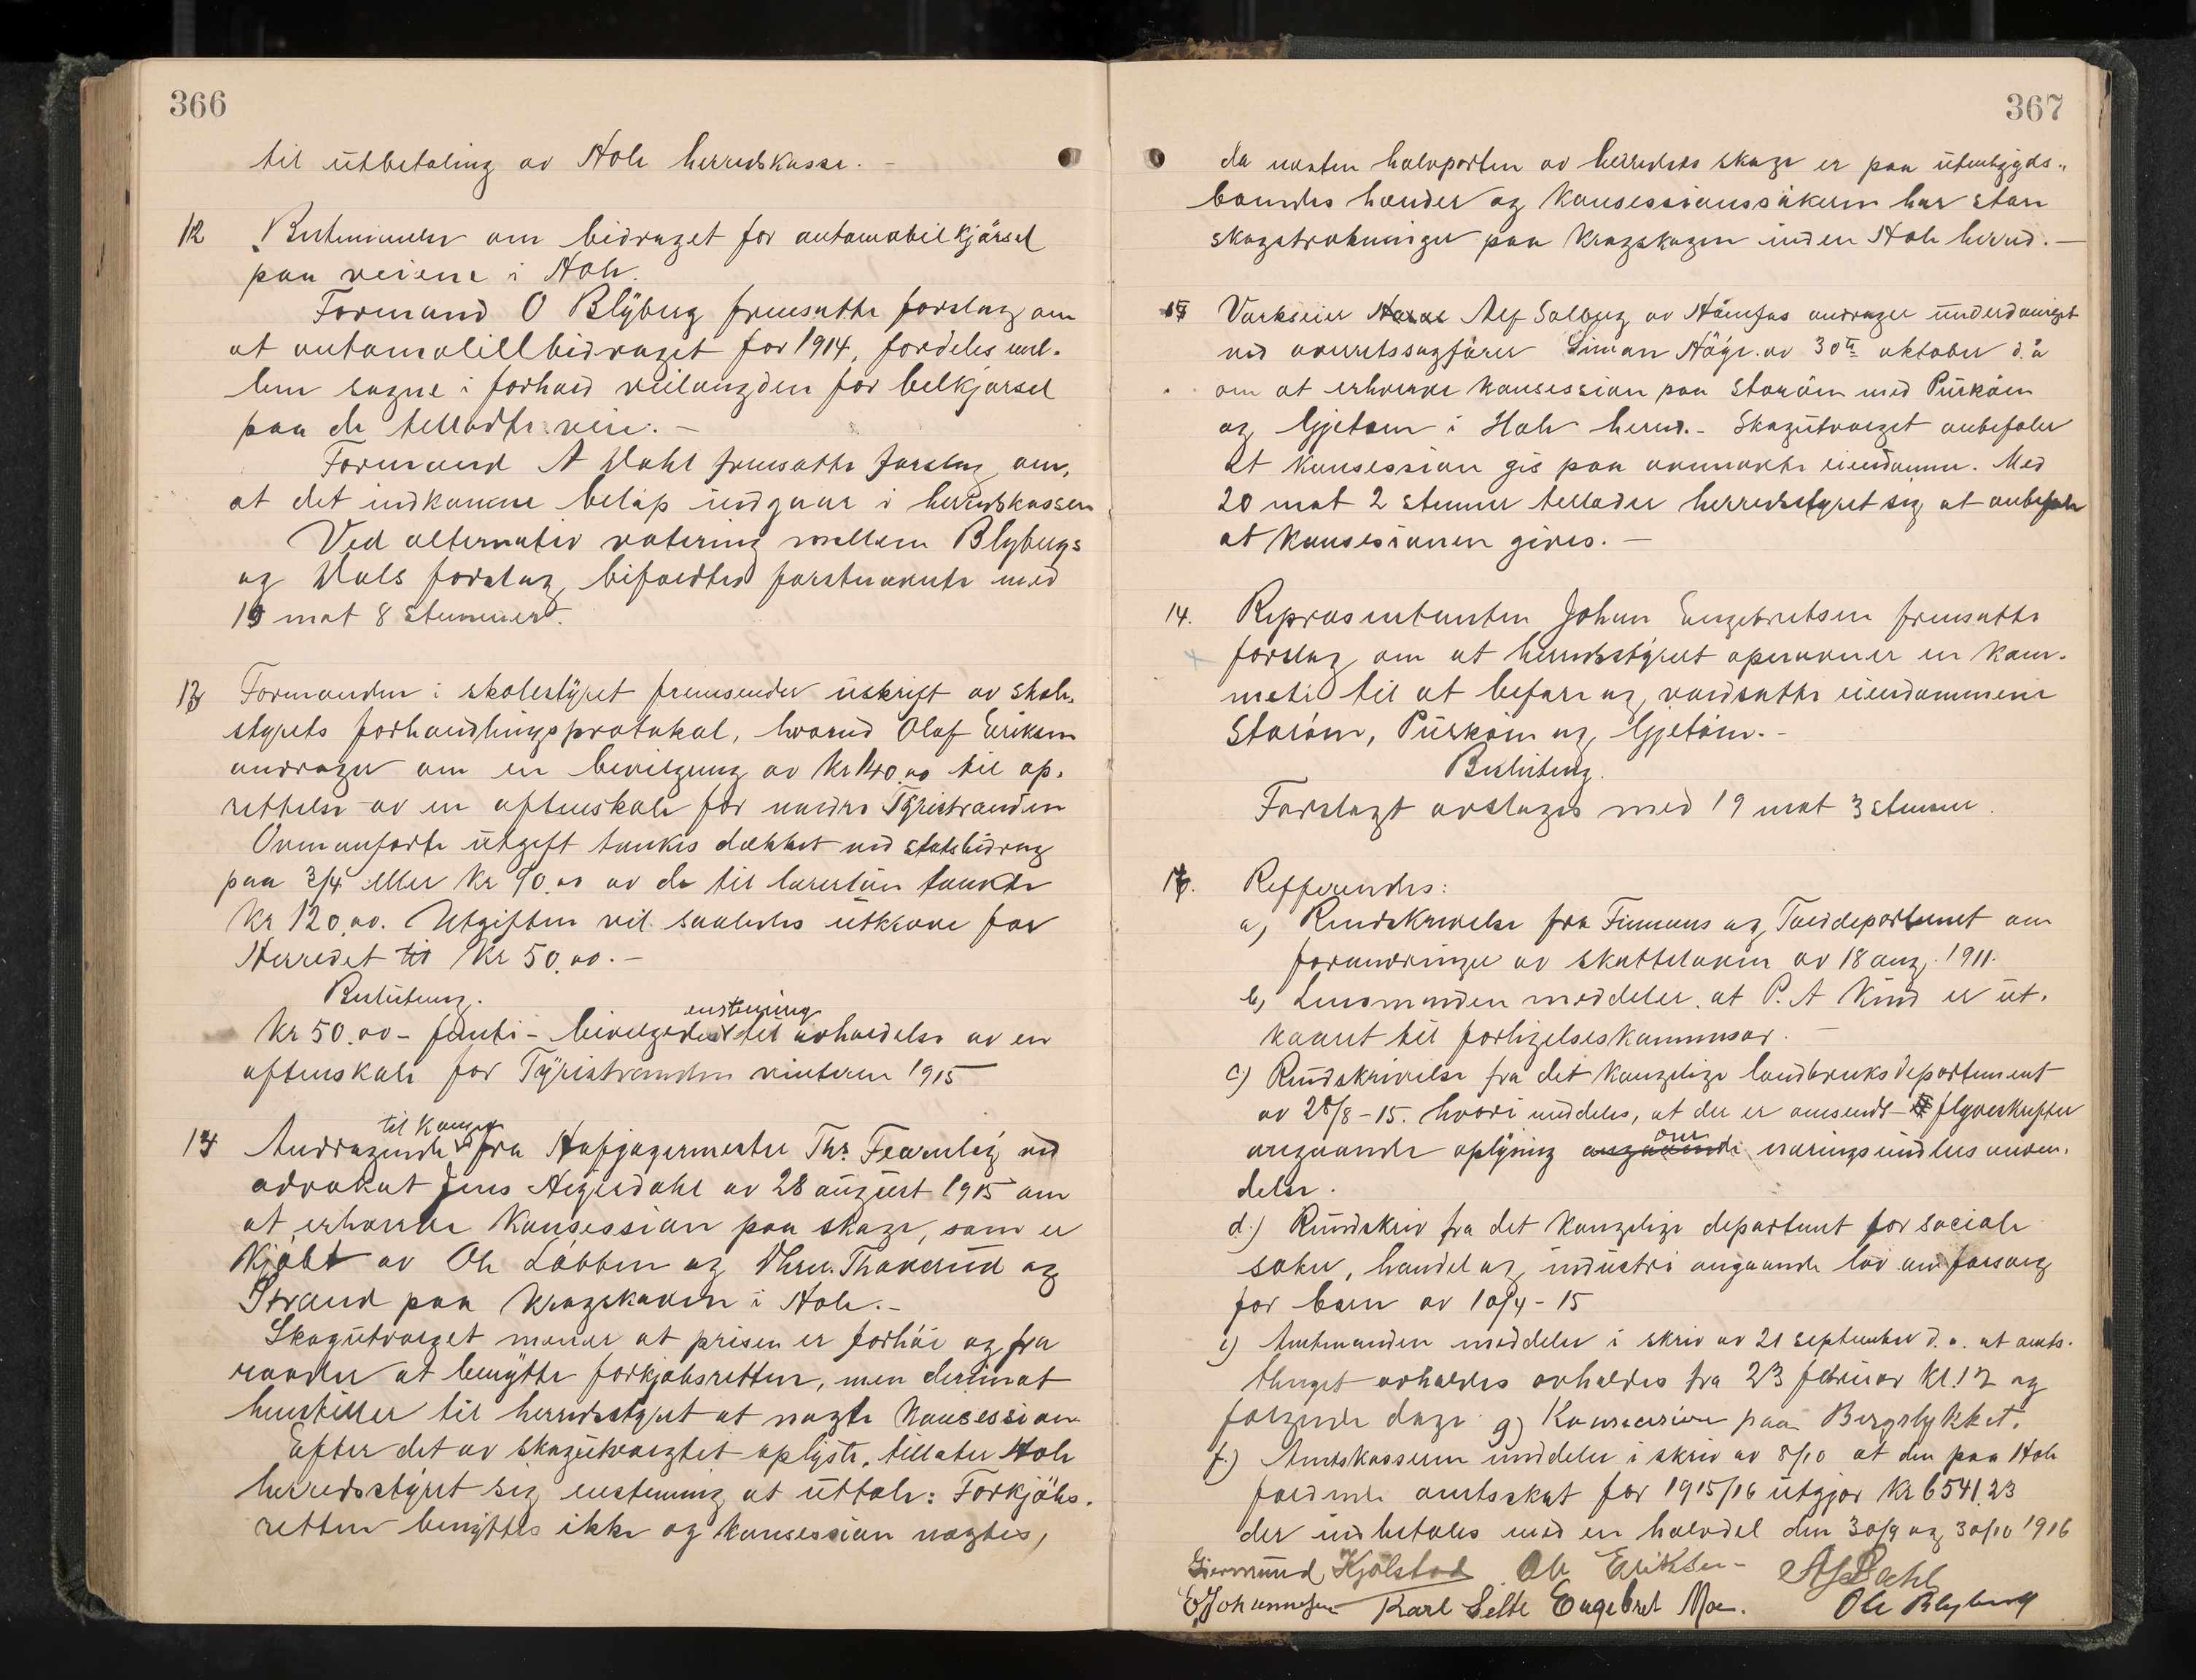 366
til utbetaling av Hole herredskasse. -
12 Bestemmelse om bidraget for automobilkjørsel
paa veiene i Hole.
Formand O Blyberg fremsatte forslag om
at automobillbidraget for 1914, fordeles mel-
lem sogne i forhold veilængden for bilkjørsel
paa de tilladte veie. -
Formand A Dahl fremsatte forslag om,
at det indkomne beløp indgaar i herredskassen
Ved alternativ votering mellem Blybergs
og Dals forslag, bifaldtes førstnævnte med
mot 8 stemmer.
13 Formanden i skolestyret fremsender uskrift av skole-
styrets forhandlingsprotokol, hvorved Olaf Eriksen
andrager om en bevilgning av Kr 140.00 til op-
rettelse av en aftenskole for nedre Tyristranden
Ovenanførte utgift tænkes dækket ved statsbidrag
paa 3/4 eller Kr 90.00 av de til lærerløn tænkte
Kr 120.00. Utgiften vil saaledes utkræve for
Herredet til Kr 50.00. -
Beslutning.
enstemmig
Kr 50.00 - femti - bevilgedes til avholdelse av en
aftenskole for Tyristranden vinteren 1915
til Kongen
14 Andragende fra Hofjægermester Ths. Fearnley ved
advokat Jens Hegerdahl av 28 august 1915 om
at erhverve Konsession paa skoge, som er
Kjøbt av Ole Løbben og Thorerud og
Strand paa Krogskoven i Hole. -
Skogutvalget mener at prisen er forhøi og fra
raader at benytte forkjøbsretten, men derimot
henstiller til herredsstyret at nægte Konsession
Efter det av skogutvalgtet oplyste, tillater Hole
herredsstyret sig enstemmig at uttale: Forkjøbs-
retten benyttes ikke og konsession nægtes,
367
da næsten halvparten av herredets skoge er paa utenbygds-
boendes hænder og Konsessionssøkeren har store
skogstrækninger paa Krogskogen inden Hole herred. -
15 Værkseier Alf Solberg av Hønefos andrager underdanigst
ved overretssagfører Simon Høyr. av 30te oktober d.a
om at erhverve konsession paa Storøen med Purkøen
og Gjetøen i Hole herred. - Skogutvalget anbefaler
at Konsession gis paa ovennævnte eiendomme. Med
20 mot 2 stemmer tillader herredsstyret sig at anbefale
at Konsesionen gives. -
14. Repræsentanten Johan Engebretsen fremsatte
forslag om at herredsstyret opnævner en kom-
mite til at befare og værdsætte eiendommene
Storøen, Purkøen og Gjetøen. -
Beslutning.
Forslagt avslages med 19 mot 3 stemmer.
Refferendes:
a) Rundskrivelse fra Finans og Tolddepartement om
forandringer av skatteloven av 18 aug. 1911.
b) Lensmanden meddeler at P. A Kind er ut-
kaaret til forligelseskommisær. -
c) Rundskrivelse fra det Kongelige landbruksdepartement
av 28/8 - 15. hvori meddeles, at der er omsendt flyveskrifter
om
angaaende oplysning angaaende næringsmidlers anven-
delse.
d.) Rundskriv fra det Kongelige departemt for sociale
saker, handel og industri angaaende lov om forsorg
for barn av 10/4 - 15
e) Amtmanden meddeler i skriv av 21 september d.a. at amts-
thinget avholdes avholdes fra 23 februar Kl. 12 og
følgende dage g) Konsession paa Bergslykket.
f.) Amtskasseren meddeler i skriv av 8/10 at den paa Hole
faldende amtsskat for 1915/16 utgjør Kr 6541.23
der indbetales med en halvdel den 30/9 og 30/10 1916
Giermund Kjølstad Ole Eriksen A Dahl
E Johannesen Karl Selte Engebret Moe. Ole Blyberg